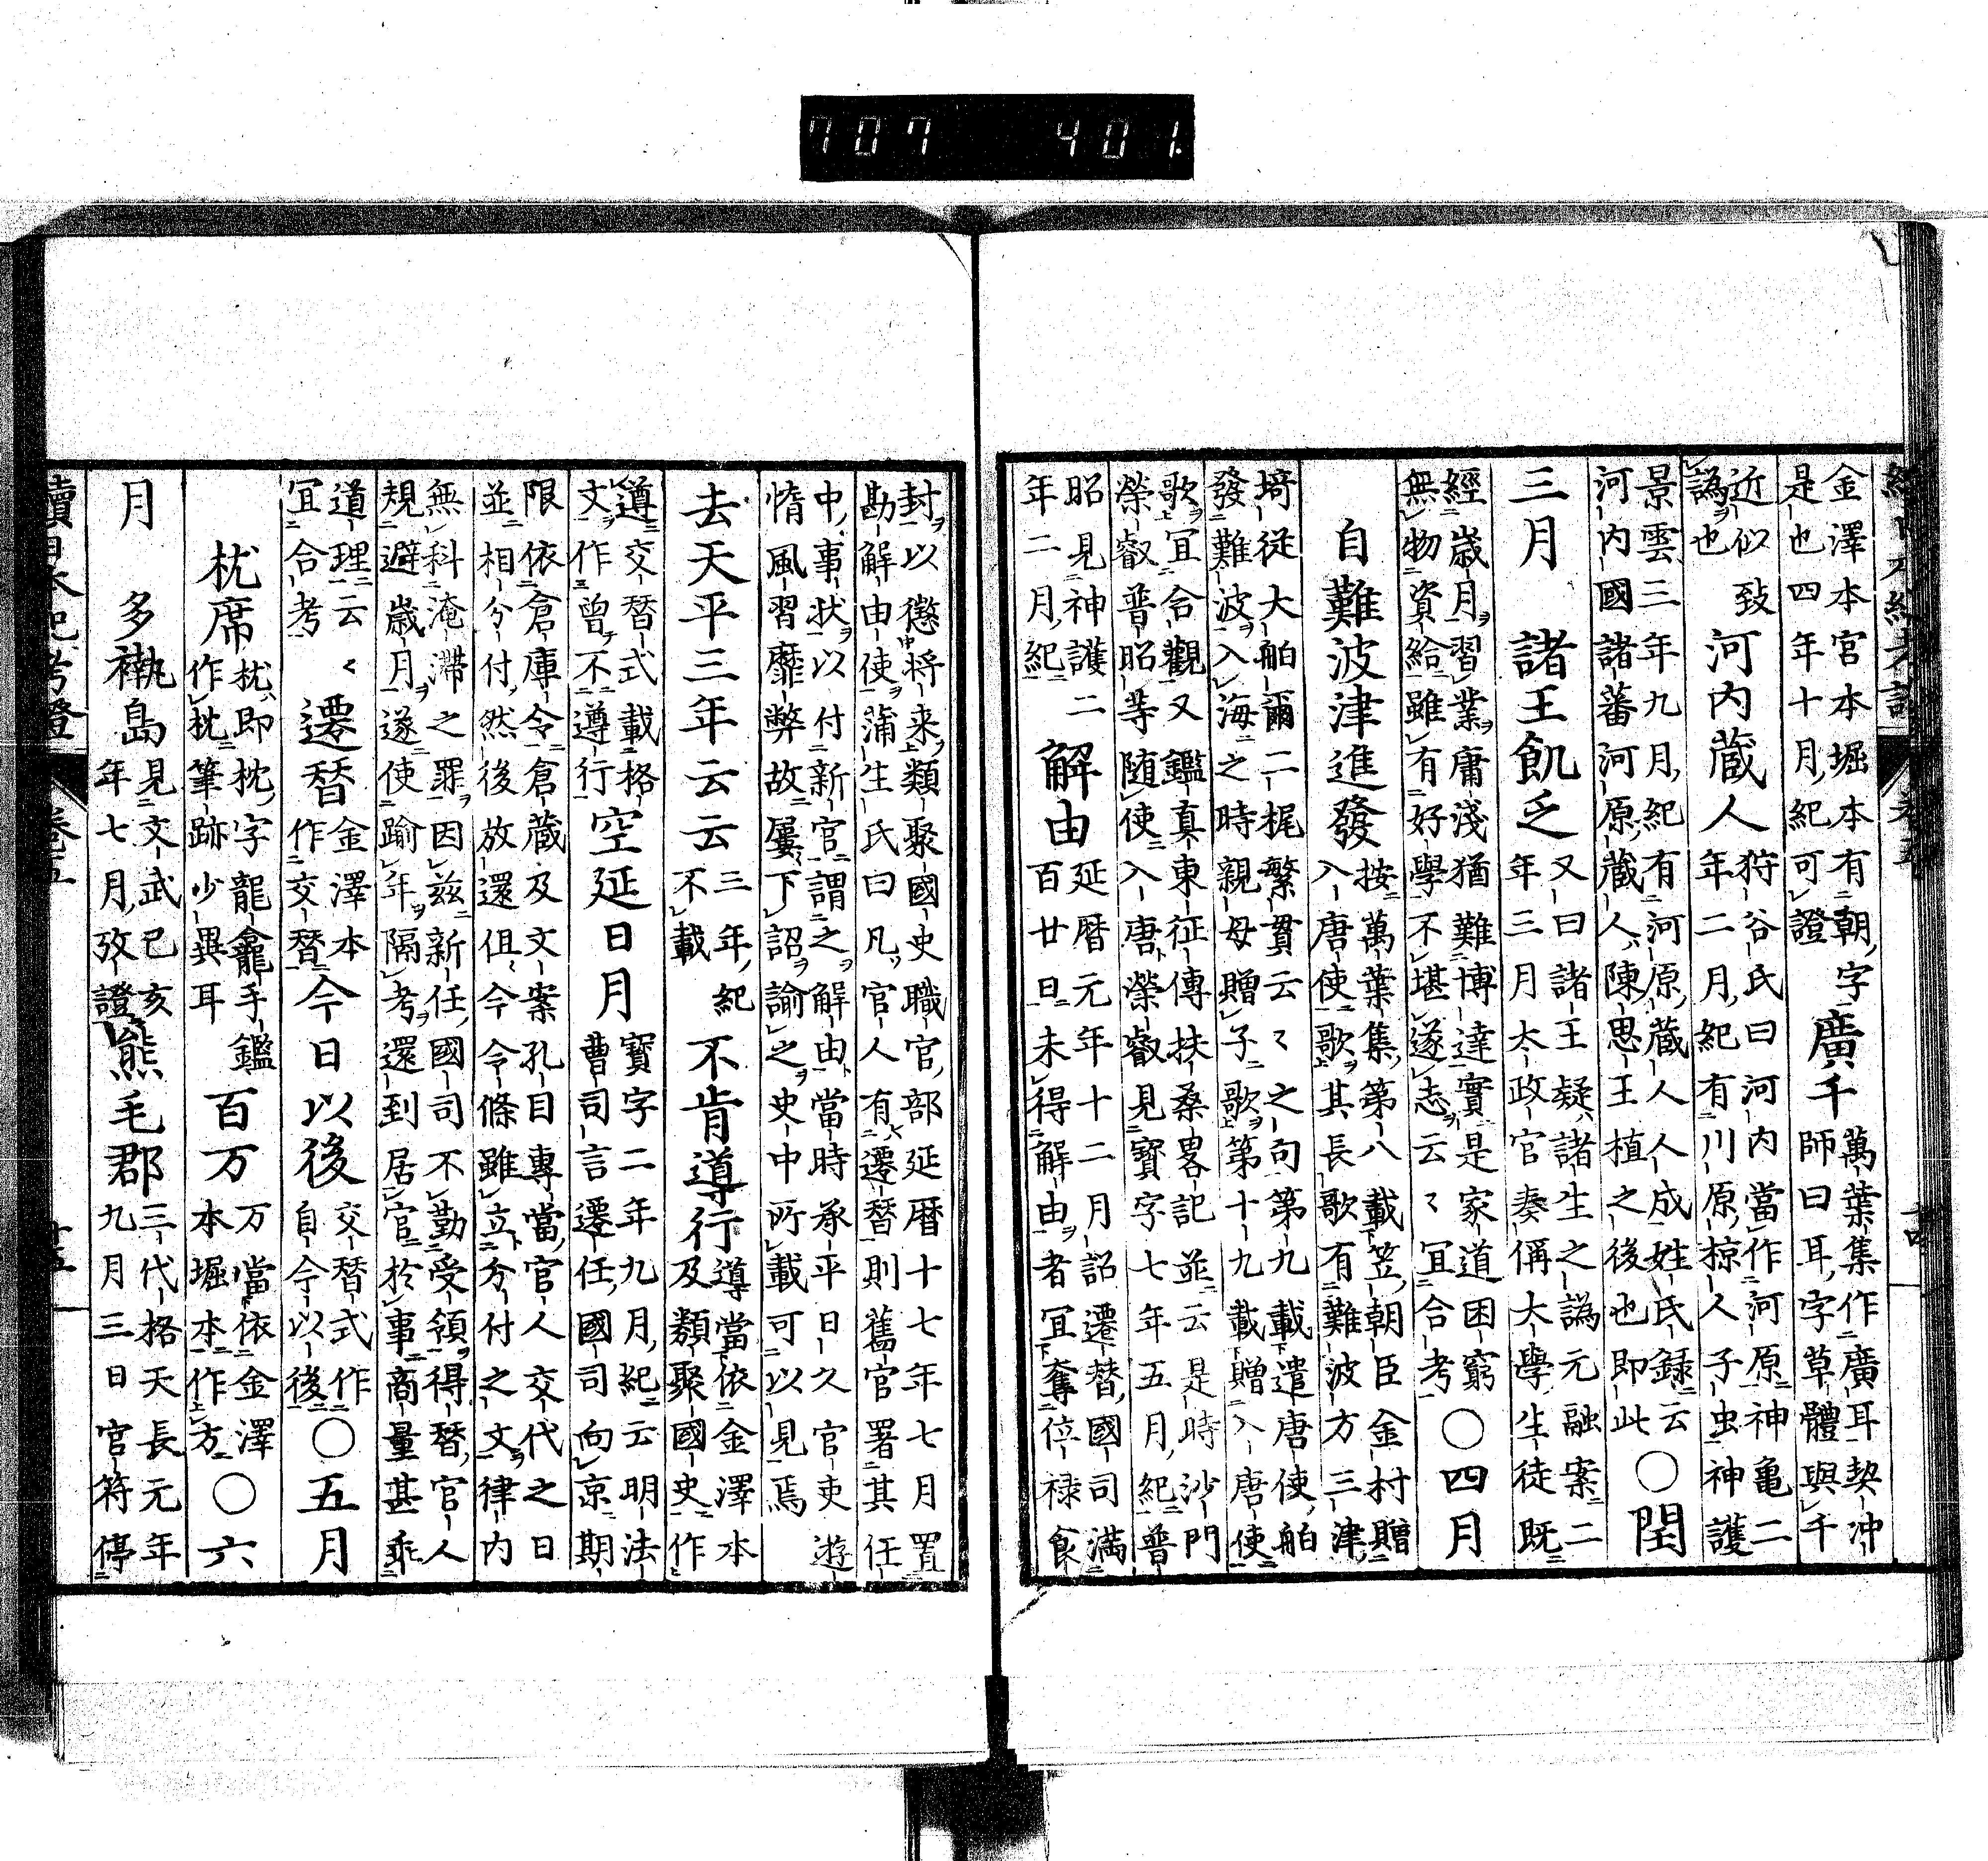 707 401.
金澤本官本堀本有朝字廣千萬葉集作廣耳契冲
是也四年十月紀可證師曰耳字草體與千
近似致河内蔵人狩谷氏曰河内當作河原神亀二
譌也年二月紀有川原椋人子虫神護
景雲三年九月紀有河原蔵人人成姓氏録云
河内國諸蕃河原蔵人陳思王植之後也即此〇閏
三月諸王飢乏又曰諸王疑諸生之譌元融案二
年三月太政官奏偁太學生徒既
經歳月習業庸淺猶難博達實是家道困窮
無物資給雖有好學不堪遂志云々宜合考〇四月
自難波津進發按萬葉集第八載笠朝臣金村贈
入唐使歌其長歌有難波方三津
埼従大舶爾二梶繁貫云々之句第九載遣唐使舶
發難波入海之時親母贈子歌第十九載贈入唐使
歌宜合觀又鑑真東征傳扶桑畧記並云是時沙門
榮叡普昭等随使入唐榮叡見寳字七年五月紀普
昭見神護二解由延暦元年十二月詔遷替國司満
年二月紀百廿日未得解由者宜奪位禄食
封以懲将来類聚國史職官部延暦十七年七月置
勘解由使蒲生氏曰凡官人有遷替則舊官署其任
中事状以付新官謂之解由當時承平日久官吏遊
惰風習靡弊故屢下詔諭之史中所載可以見焉
去天平三年云云三年紀不載不肯導行導當依金澤本
及類聚國史作
遵交替式載格空延日月寳字二年九月紀云明法
文作曾不遵行曹司言遷任國司向京期
限依倉庫令倉蔵及文案孔目專當官人交代之日
並相分付然後放還但令條雖立分付之文律内
無科淹滞之罪因茲新任國司不勤受領得替官人
規避歳月遂使踰年隔考還到居官於事商量甚乖
道理云々遷替金澤本今日以後交替式作
宜合考作交替自今以後〇五月
枕席枕即枕字龍龕手鑑百万万當依金澤
作枕筆跡少異耳本堀本作方〇六
月多褹島見文武己亥熊毛郡三代格天長元年
年七月攷證九月三日官符停
續日本紀考證 巻五 十五